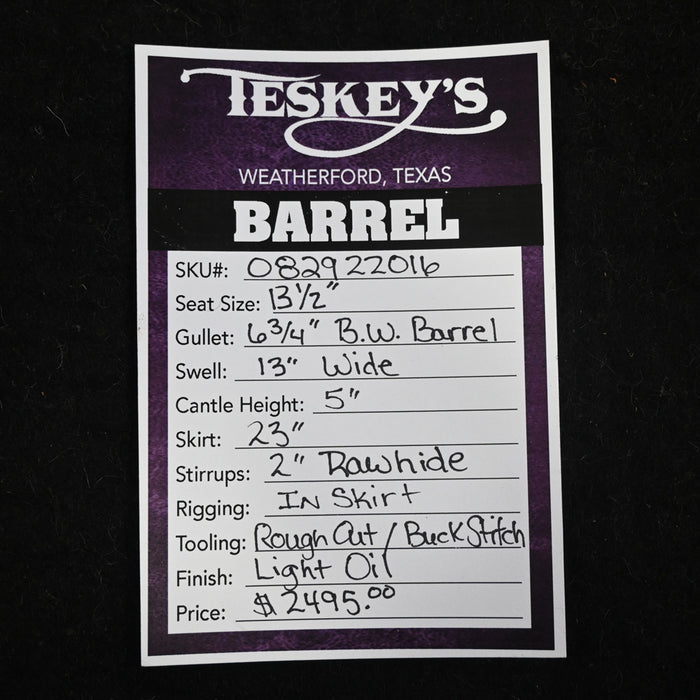 TESKEY'S
WEATHERFORD, TEXAS
BARREL
SKU#: 082922016
Seat Size: 13 1/2"
Gullet: 6 3/4" B.W. Barrel
Swell: 13" Wide
Cantle Height: 5"
Skirt: 23"
Stirrups: 2" Rawhide
Rigging: In Skirt
Tooling: Rough Out / Buck Stitch
Finish: Light Oil
Price: $2495.00